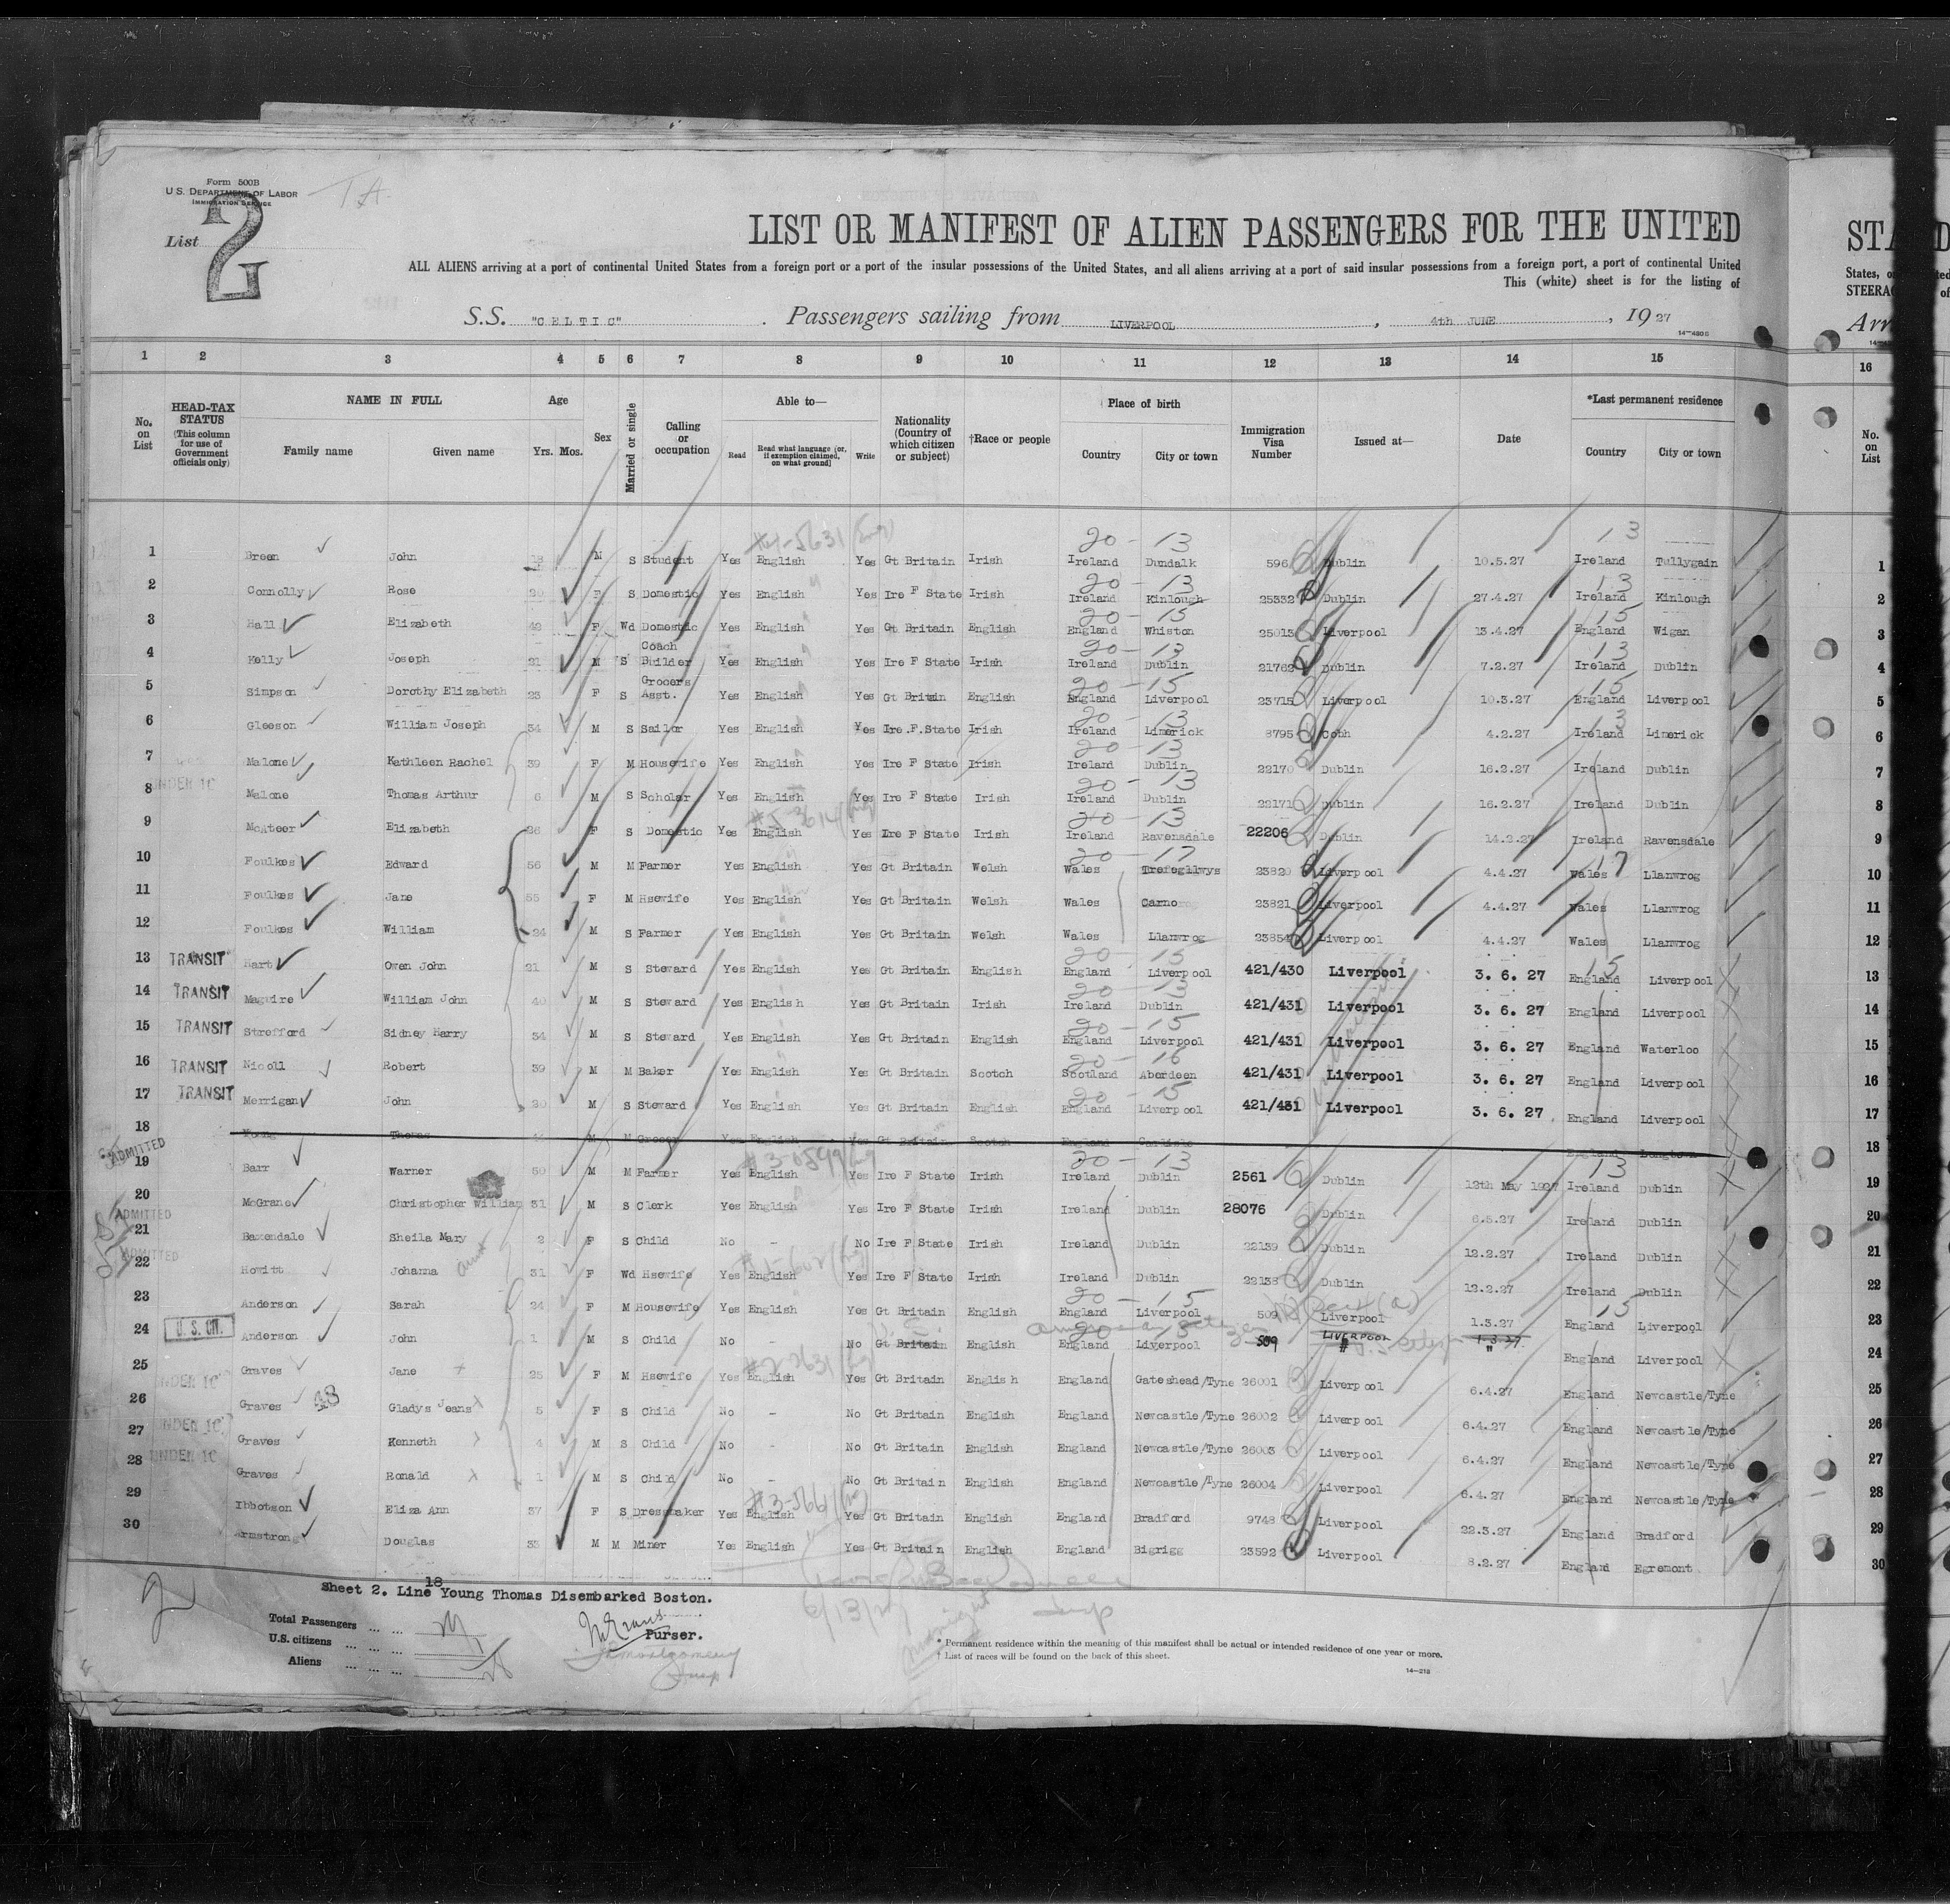 Form 500B
U.S. DEPARTMENT OF LABOR
IMMIGRATION SERVICE
List 2
LIST OR MANIFEST OF ALIEN PASSENGERS FOR THE UNITED
ALL ALIENS arriving at a port of continental United States from a foreign port or a port of the insular possessions of the United States, and all aliens arriving at a port of said insular possessions from a foreign port, a port of continental United
This (white) sheet is for the listing of
S.S. "CELTIC". Passengers sailing from LIVERPOOL, 4th JUNE, 1927
14-4805
1 2 3 4 5 6 7 8 9 10 11 12 13 14 15 16
No. on List
HEAD-TAX STATUS (This column for use of Government officials only)
NAME IN FULL Family name Given name
Age Yrs. Mos.
Sex
Married or single
Calling or occupation
Able to— Read Read what language [or, if exemption claimed, on what ground] Write
Nationality (Country of which citizen or subject)
†Race or people
Place of birth Country City or town
Immigration Visa Number
Issued at—
Date
*Last permanent residence Country City or town
No. on List
1 Breen John 18 M S Student Yes English Yes Gt Britain Irish Ireland Dundalk 596 Dublin 10.5.27 Ireland Tullygain 1
2 Connolly Rose F S Domestic Yes English Yes Ire F State Irish Ireland Kinlough 25332 Dublin 27.4.27 Ireland Kinlough 2
3 Hall Elizabeth F Wd Domestic Yes English Yes Gt Britain English England Whiston 25013 Liverpool 13.4.27 England Wigan 3
4 Kelly Joseph 21 M S Coach Builder Yes English Yes Ire F State Irish Ireland Dublin 21762 Dublin 7.2.27 Ireland Dublin 4
5 Simpson Dorothy Elizabeth 23 F S Grocers Asst. Yes English Yes Gt Britain English England Liverpool 23715 Liverpool 10.3.27 England Liverpool 5
6 Gleeson William Joseph 34 M S Sailor Yes English Yes Ire.F.State Irish Ireland Limerick 8795 Cobh 4.2.27 Ireland Limerick 6
7 Malone Kathleen Rachel 39 F M Housewife Yes English Yes Ire F State Irish Ireland Dublin 22170 Dublin 16.2.27 Ireland Dublin 7
8 UNDER 16 Malone Thomas Arthur 6 M S Scholar Yes English Yes Ire F State Irish Ireland Dublin 22171 Dublin 16.2.27 Ireland Dublin 8
9 McAteer Elizabeth 26 F S Domestic Yes English Yes Ire F State Irish Ireland Ravensdale 22206 Dublin 14.2.27 Ireland Ravensdale 9
10 Foulkes Edward 56 M M Farmer Yes English Yes Gt Britain Welsh Wales Trefegllwys 23820 Liverpool 4.4.27 Wales Llanwrog 10
11 Foulkes Jane 55 F M Hsewife Yes English Yes Gt Britain Welsh Wales Carno 23821 Liverpool 4.4.27 Wales Llanwrog 11
12 Foulkes William 24 M S Farmer Yes English Yes Gt Britain Welsh Wales Llanwrog 23854 Liverpool 4.4.27 Wales Llanwrog 12
13 TRANSIT Hart Owen John 21 M S Steward Yes English Yes Gt Britain English England Liverpool 421/430 Liverpool 3. 6. 27 England Liverpool 13
14 TRANSIT Maguire William John 40 M S Steward Yes English Yes Gt Britain Irish Ireland Dublin 421/431 Liverpool 3. 6. 27 England Liverpool 14
15 TRANSIT Strefford Sidney Harry 34 M S Steward Yes English Yes Gt Britain English England Liverpool 421/431 Liverpool 3. 6. 27 England Waterloo 15
16 TRANSIT Nicoll Robert 39 M M Baker Yes English Yes Gt Britain Scotch Scotland Aberdeen 421/431 Liverpool 3. 6. 27 England Liverpool 16
17 TRANSIT Merrigan John 30 M S Steward Yes English Yes Gt Britain English England Liverpool 421/431 Liverpool 3. 6. 27 England Liverpool 17
18 Young Thomas M M Grocer Yes English Yes Gt Britain Scotch England Carlisle England Longtown 18
19 ADMITTED Barr Warner 50 M M Farmer Yes English Yes Ire F State Irish Ireland Dublin 2561 Dublin 12th May 1927 Ireland Dublin 19
20 McGrane Christopher William 31 M S Clerk Yes English Yes Ire F State Irish Ireland Dublin 28076 Dublin 6.5.27 Ireland Dublin 20
21 ADMITTED Baxendale Sheila Mary 2 F S Child No - No Ire F State Irish Ireland Dublin 22139 Dublin 12.2.27 Ireland Dublin 21
22 ADMITTED Howitt Johanna aunt 31 F Wd Hsewife Yes English Yes Ire F State Irish Ireland Dublin 22138 Dublin 12.2.27 Ireland Dublin 22
23 Anderson Sarah 24 F M Housewife Yes English Yes Gt Britain English England Liverpool 509 Liverpool 1.3.27 England Liverpool 23
24 U.S. CIT. Anderson John 1 M S Child No - No Gt Britain English England Liverpool 509 Liverpool 1.3.27 England Liverpool 24
25 Graves Jane 25 F M Hsewife Yes English Yes Gt Britain English England Gateshead/Tyne 26001 Liverpool 6.4.27 England Newcastle/Tyne 25
26 UNDER 16 Graves Gladys Jeans 5 F S Child No - No Gt Britain English England Newcastle/Tyne 26002 Liverpool 6.4.27 England Newcastle/Tyne 26
27 UNDER 16 Graves Kenneth 4 M S Child No - No Gt Britain English England Newcastle/Tyne 26003 Liverpool 6.4.27 England Newcastle/Tyne 27
28 UNDER 16 Graves Ronald 1 M S Child No - No Gt Britain English England Newcastle/Tyne 26004 Liverpool 6.4.27 England Newcastle/Tyne 28
29 Ibbotson Eliza Ann 37 F S Dressmaker Yes English Yes Gt Britain English England Bradford 9748 Liverpool 22.3.27 England Bradford 29
30 Armstrong Douglas 33 M M Miner Yes English Yes Gt Britain English England Bigrigg 23592 Liverpool 8.2.27 England Egremont 30
Sheet 2. Line 18 Young Thomas Disembarked Boston.
Total Passengers
U.S. citizens
Aliens
Purser.
Montgomery
Insp
6/13/27
* Permanent residence within the meaning of this manifest shall be actual or intended residence of one year or more.
† List of races will be found on the back of this sheet.
14-218